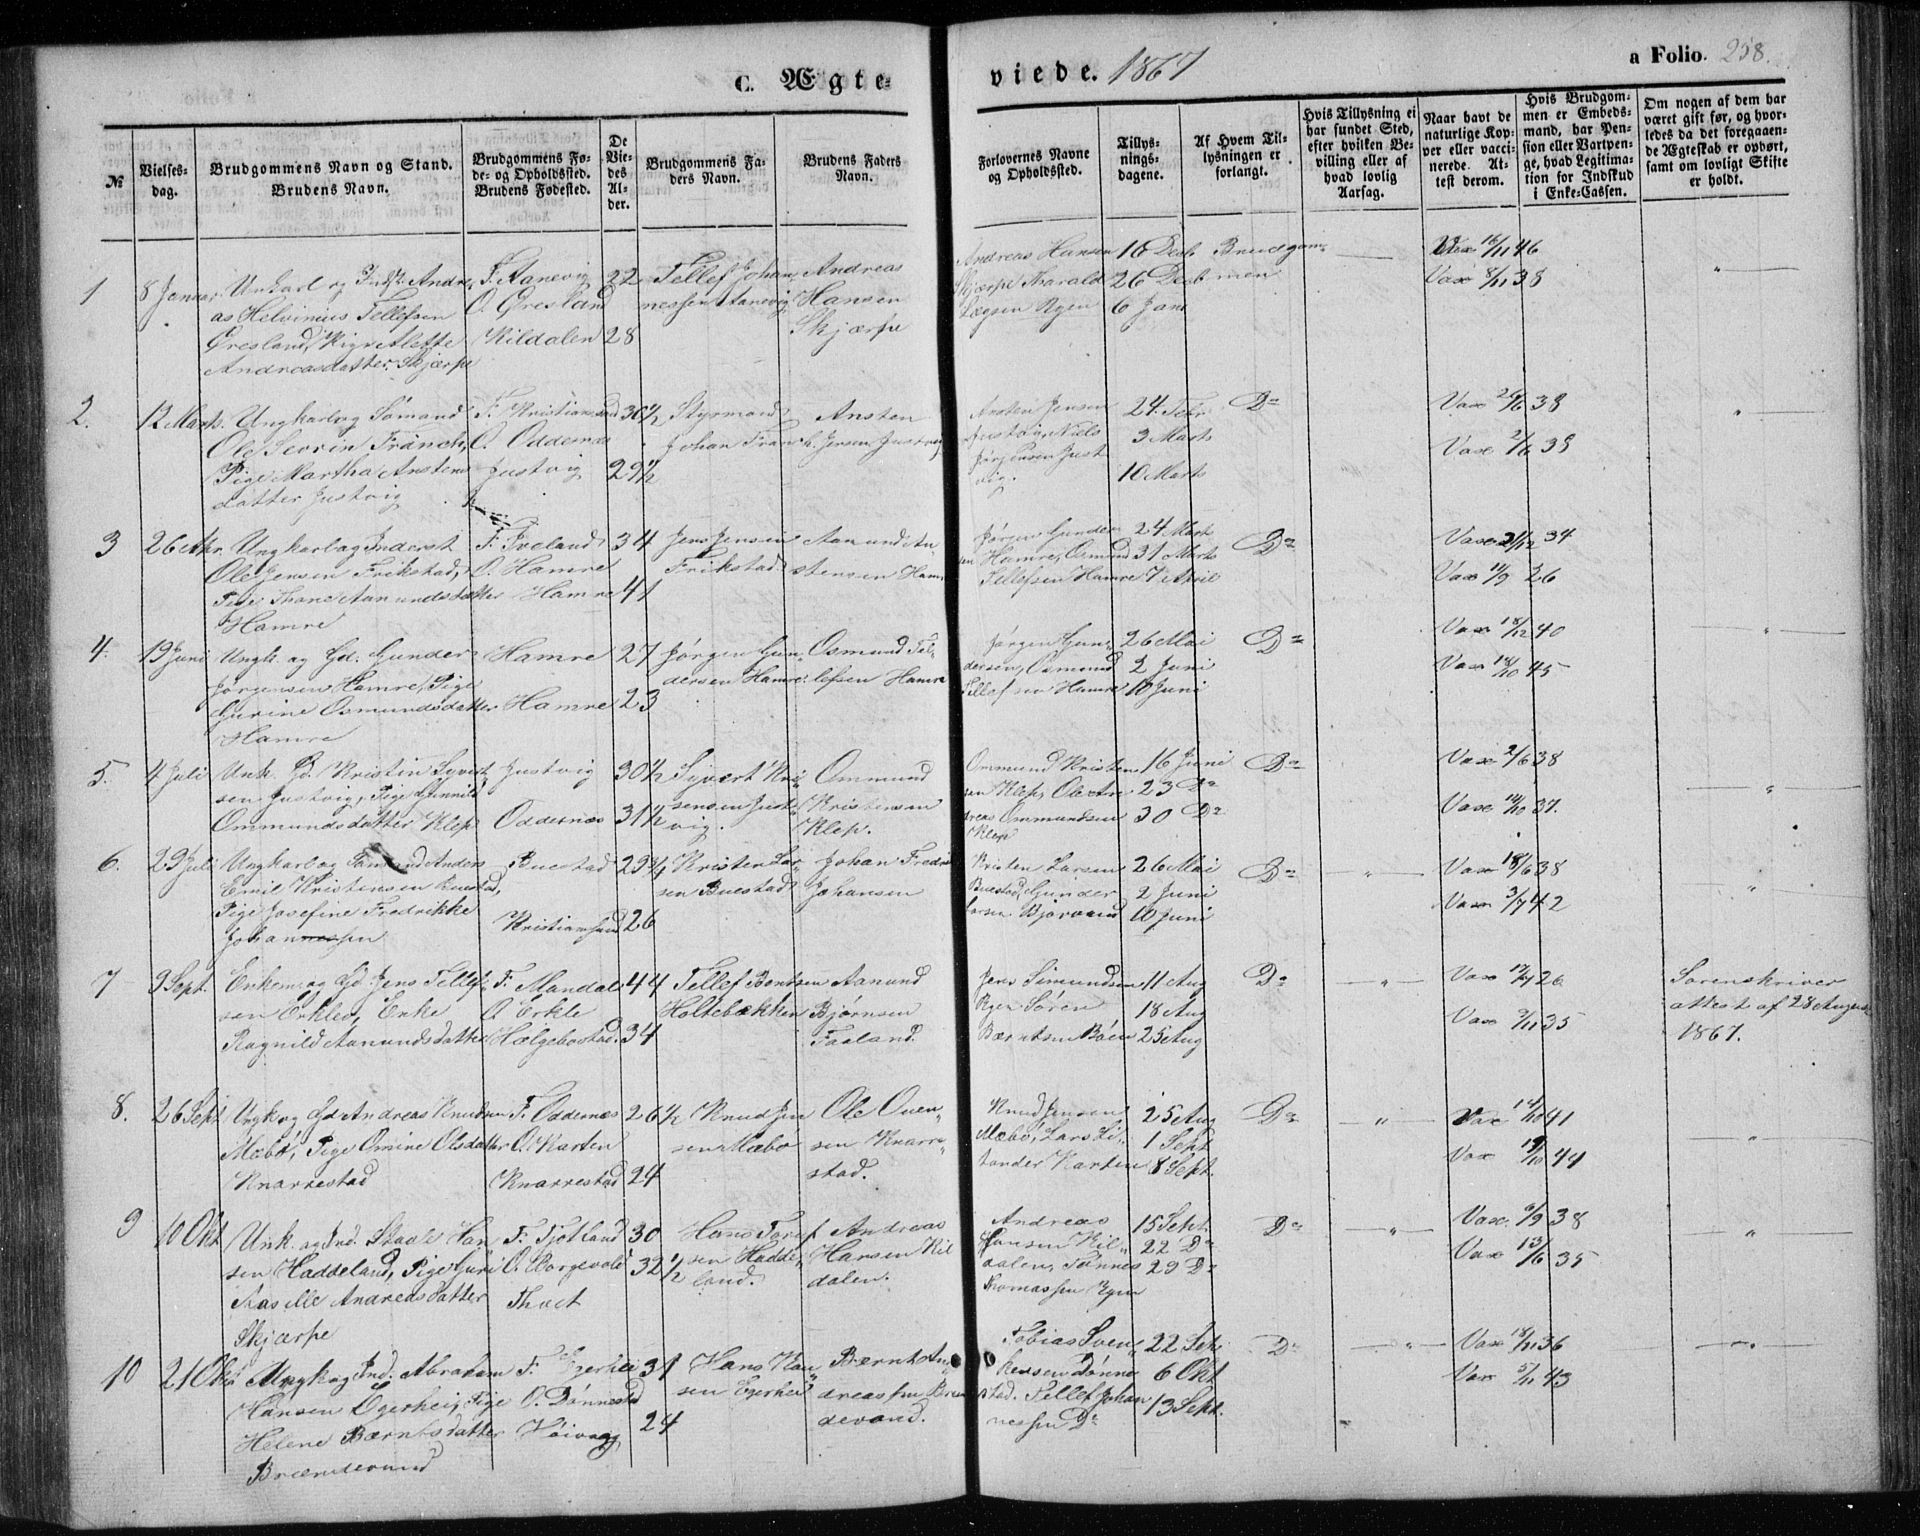 C. Ægte-
viede. 1867
a Folio. 258.
№
Vielses-
dag.
Brudgommens Navn og Stand.
Brudens Navn.
Brudgommens Fø-
de- og Opholdssted.
Brudens Fødested.
De
Vie-
des
Al-
der.
Brudgommens Fa-
ders Navn.
Brudens Faders
Navn.
Forlovernes Navne
og Opholdssted.
Tillys-
nings-
dagene.
Af Hvem Til-
lysningen er
forlangt.
Hvis Tillysning ei
har fundet Sted,
efter hvilken Be-
villing eller af
hvad lovlig
Aarsag.
Naar havt de
naturlige Kop-
per eller vacci-
nerede. At-
test derom.
Hvis Brudgom-
men er Embeds-
mand, har Pen-
sion eller Vartpen-
ge, hvad Legitima-
tion for Indskud
i Enke-Cassen.
Om nogen af dem har
været gift før, og hvor-
ledes da det foregaaen-
de Ægteskab er ophørt,
samt om lovligt Skifte
er holdt.
1
8 Januar
Unkarl og Inds. Andre-
as Helvinius Tellefsen
Øresland, Pige Alette
Andreasdatter Skjærpe
F. Aanevig
O. Øresland
Kildalen
22
28
Tellef Johan-
nessen Aanevig
Andreas
Hansen
Skjærpe
Andreas Hansen
Skjærpe Tharald
Lægsen Ryen
16 Desb
26 Desb
6 Jan
Brudgom-
men
Vax 16/11 46
Vax 8/11 38
2.
12 Marts.
Ungkarl og Sømand
Ole Severin Franch,
Pige Martha Anstens
datter Justvig
F. Kristiansand
O. Oddernæs
Justvig
30½
29½
Styrmand
Johan Franch
Ansten
Jensen Justvig
Ansten Jensen
Justvig, Niels
Jørgensen Just
vig.
24. Febr
3 Marts
10 Marts
Do
Vax 26/6 38
Vax 2/6 38
3
26 Apr.
Ungkarl og Inderst
Ole Jensen Frikstad,
Pige Thone Aanundsdatter
Hamre
F. Iveland
O. Hamre
Hamre
34
41
Jens Jensen
Frikstad
Aanund An-
stensen Hamre
Jørgen Gunder
sen Hamre, Osmund
Tellefsen Hamre
24 Mart
31 Marts
7 April
Do
Vax 21/12 34
Vax 14/9 26
4.
19 Juni
Ungk. og Gd. Gunder
Jørgensen Hamre, Pige
Gurine Osmundsdatter
Hamre
Hamre
Hamre
27
23
Jørgen Gun-
dersen Hamre
Osmund Tel-
lefsen Hamre
Jørgen Gun-
dersen, Osmund
Tellefsen Hamre
26 Mai
2 Juni
10 Juni
Do
Vax 18/12 40
Vax 18/10 45
5.
4 Juli
Unk. Gd. Kristin Syvert
sen Justvig, Pige Gunnild
Ommundsdatter Klep
Justvig
Oddernæs
30½
31½
Syvert Kri-
stensen Just-
vig.
Ommund
Kristensen
Klep.
Ommund Kristen
sen Klep, Ole An
dreas Ommundsen
Klep
16 Juni
23 Do
30 Do
Do
Vax 2/6 38
Vax 14/10 37.
6.
29 Juli
Ungkarl og Sømand Anders
Emil Kristensen Buestad,
Pige Josefine Fredrikke
Johannessen
Buestad
Kristiansand
29¾
26
Kristen Lar
sen Buestad
Johan Fredri
Johansen
Kristen Larsen
Buestad, Gunder
Larsen Bjorvand
26 Mai
2 Juni
10 Juni
Do
Vax 18/6 38
Vax 3/7 42
7
9 Sept.
Enkem. og Gd. Jens Tellef-
sen Erkled, Enke
Ragnild Aanundsdatter
F. Mandal
O Erkle
Hælgebostad
44
34
Tellef Bentsen
Holtebækken
Aanund
Bjørnsen
Faaland.
Jens Simundsen
Ryen Sören
Bærntsen Böen
11 Aug
18 Aug
25 Aug
Do
Vax 17/7 26
Vax 9/11 35
Sorenskriver
attest af 28 August
1867.
8.
26 Sept
Ungk og Gd Andreas Knudsen
Mæbö, Pige Omine Olsdatter
Knarrestad
F. Oddernæs
O. Karten
Knarrestad
26½
24
Knud Jen
sen Mæbo
Ole Oven-
sen Knarre-
stad.
Knud Jensen
Mæbö, Lars Li-
tander Karten
25 Aug
1 Sept
8 Sept.
Do
Vax 14/10 41
Vax 19/10 44
9
10 Okt
Unk. og Ind. Staale Han
sen Haddeland, Pige Guri
Aasille Andreasdatter
Skjærpe
F. Fjotland
O. Borgevold
Thvet
30
32½
Hans Torj
sen Hadde-
land.
Andreas
Hansen Kil
dalen.
Andreas
Hansen Kil-
dalen, Tønnes
Thomassen Ryen
15 Sept
22 Do
29 Do
Do
Vax. 9/9 38
Vax 13/6 35
10
21 Okt
Ungk og Ind. Abraham
Hansen Egerhei, Pige
Helene Bærntsdatter
Brændevand
F. Egerhei
O. Dønnestad
Høivaag
31
24
Hans Han-
sen Egerhei
Bærnt An-
dreassen Bræn
devand.
Tobias Sven-
kessen Dønne
stad. Tellef Johan
nessen Do
22 Sept.
6 Okt
13 Sept.
Do
Vax 18/11 36
Vax 5/11 43